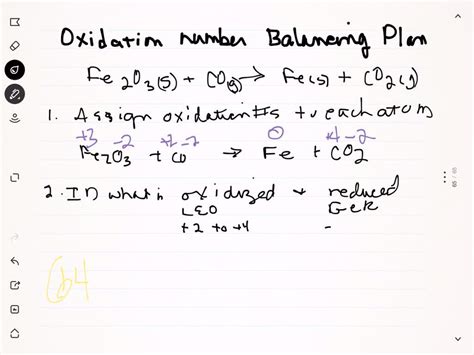 Oxidation number Balancing Plan
Fe2O3(s) + CO(g) → Fe(s) + CO2(g)
1. Assign oxidation #s to each atom
+3 -2 +2 -2 0 +4 -2
Fe2O3 + CO → Fe + CO2
2. ID what is oxidized + reduced
LEO GER
+2 to +4 -
64